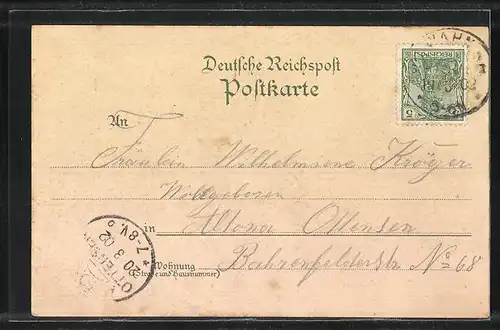 Deutsche Reichspost
Postkarte
REICHSPOST
5
19 3 02
An
Fräulein Wilhelmsene Kröger
Wohlgeboren
in Altona Ottensen
Wohnung
(Straße und Hausnummer)
Bahrenfelderstr No 68
OTTENSEN
20 3 02
7-8V.